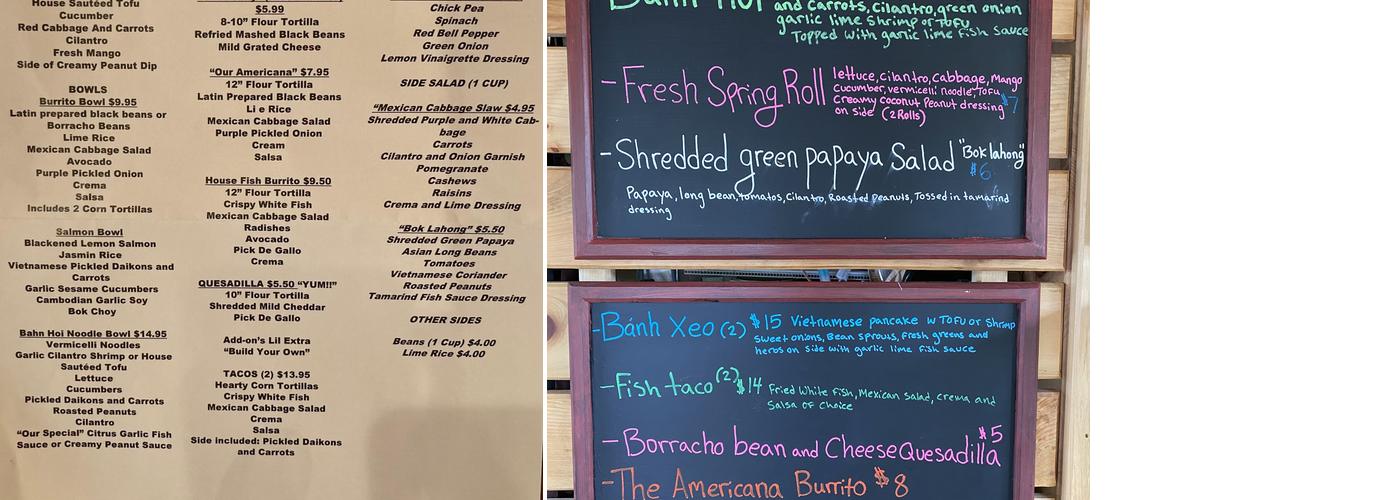 House Sautéed Tofu
Cucumber
Red Cabbage And Carrots
Cilantro
Fresh Mango
Side of Creamy Peanut Dip
BOWLS
Burrito Bowl $9.95
Latin prepared black beans or
Borracho Beans
Lime Rice
Mexican Cabbage Salad
Avocado
Purple Pickled Onion
Crema
Salsa
Includes 2 Corn Tortillas
Salmon Bowl
Blackened Lemon Salmon
Jasmin Rice
Vietnamese Pickled Daikons and
Carrots
Garlic Sesame Cucumbers
Cambodian Garlic Soy
Bok Choy
Bahn Hoi Noodle Bowl $14.95
Vermicelli Noodles
Garlic Cilantro Shrimp or House
Sautéed Tofu
Lettuce
Cucumbers
Pickled Daikons and Carrots
Roasted Peanuts
Cilantro
“Our Special” Citrus Garlic Fish
Sauce or Creamy Peanut Sauce
$5.99
8-10” Flour Tortilla
Refried Mashed Black Beans
Mild Grated Cheese
“Our Americana” $7.95
12” Flour Tortilla
Latin Prepared Black Beans
Li e Rice
Mexican Cabbage Salad
Purple Pickled Onion
Cream
Salsa
House Fish Burrito $9.50
12” Flour Tortilla
Crispy White Fish
Mexican Cabbage Salad
Radishes
Avocado
Pick De Gallo
Crema
QUESADILLA $5.50 “YUM!!”
10” Flour Tortilla
Shredded Mild Cheddar
Pick De Gallo
Add-on’s Lil Extra
“Build Your Own”
TACOS (2) $13.95
Hearty Corn Tortillas
Crispy White Fish
Mexican Cabbage Salad
Crema
Salsa
Side included: Pickled Daikons
and Carrots
Chick Pea
Spinach
Red Bell Pepper
Green Onion
Lemon Vinaigrette Dressing
SIDE SALAD (1 CUP)
“Mexican Cabbage Slaw $4.95
Shredded Purple and White Cab-
bage
Carrots
Cilantro and Onion Garnish
Pomegranate
Cashews
Raisins
Crema and Lime Dressing
“Bok Lahong” $5.50
Shredded Green Papaya
Asian Long Beans
Tomatoes
Vietnamese Coriander
Roasted Peanuts
Tamarind Fish Sauce Dressing
OTHER SIDES
Beans (1 Cup) $4.00
Lime Rice $4.00
and Carrots, Cilantro, green onion
garlic lime Shrimp or TOFU
Topped with garlic lime fish sauce
- Fresh Spring Roll
lettuce, cilantro, cabbage, Mango
cucumber, vermicelli noodle, TOFU
creamy coconut Peanut dressing $7
on side (2 Rolls)
- Shredded green papaya Salad "Bok lahong"
$6
Papaya, long bean, tomatos, Cilantro, Roasted Peanuts, Tossed in tamarind
dressing
- Bánh Xeo (2) $15 Vietnamese pancake w TOFU or Shrimp
sweet onions, Bean sprouts, Fresh greens and
herbs on side with garlic lime fish sauce
- Fish taco (2) $14 Fried White fish, Mexican salad, crema and
Salsa of choice
- Borracho bean and Cheese Quesadilla $5
- The Americana Burrito $8